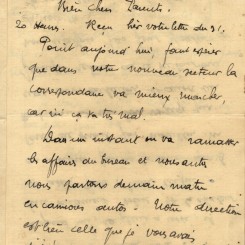 Bien Chers Parents.
20 heures. Reçu hier votre lettre du 31.
Point aujourd'hui faut espérer
que dans notre nouveau secteur la
correspondance va mieux marcher,
car ici ça va très mal.
Dans un instant on va ramasser
les affaires du bureau et nous autres
nous partons demain matin
en camions autos. Notre direction
est bien celle que je vous avais